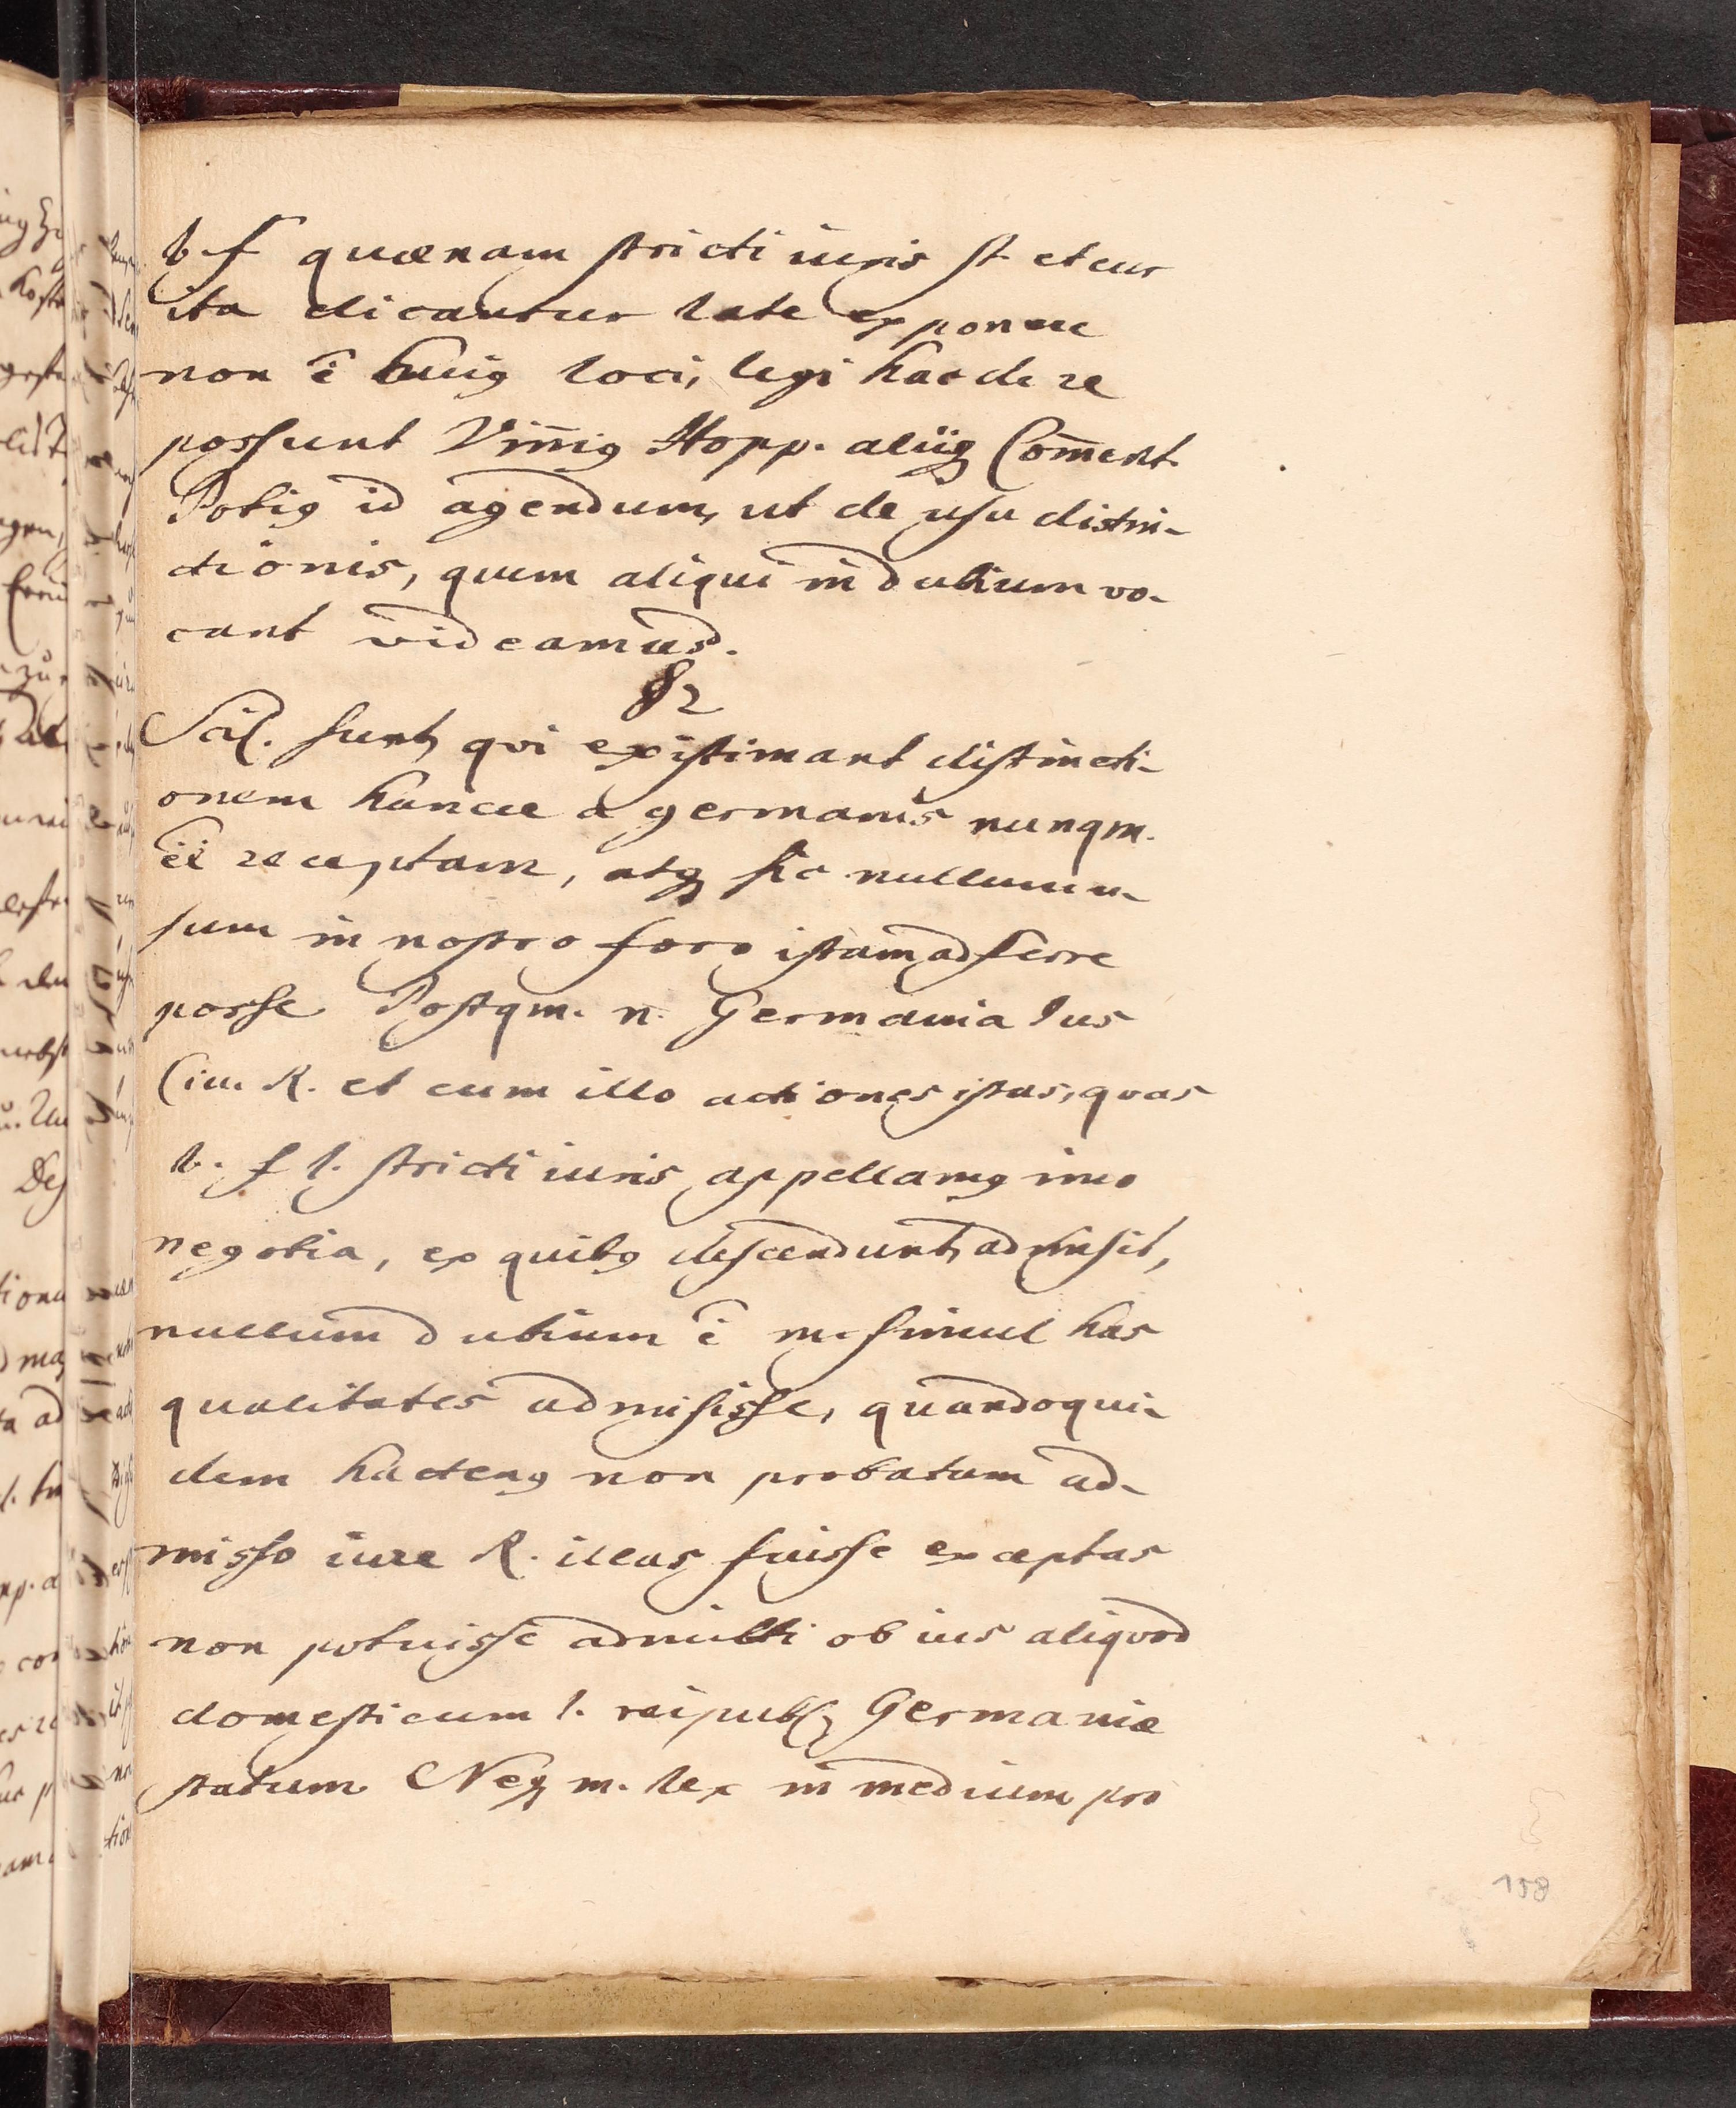 b. f quænam stricti iuris st. et cur
ita dicantur late exponere
non ē huig loci, legi hac de re
possunt Vin̄ig Hopp. aliiq Com̄ent.
Potig id agendum, ut de usu distin-
ctionis, quem aliqui in dubium vo-
cant videamus.
§ 2
Scil. sunt, qvi existimant distincti-
onem hance a germanis nunqm.
ēē receptam, atq sic nullum u-
sum in nostro foro istam adferre
posse Postqm. n. Germania Ius
Civ. R. et cum illo actiones istas, qvas
b. f l. stricti iuris appellamg imo
negotia, ex quibg descendunt, admisit,
nullum dubium ē m. simul has
qualitates admisisse, quandoqui-
dem hacteng non probatum ad-
misso iure R. illas fuisse exceptas
non potuisse admitti ob ius aliqvod
domesticum l. reipubl. Germaniæ
statum Neq m. lex in medium pro
158